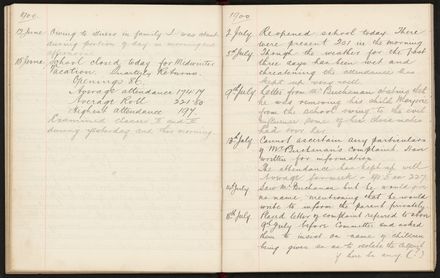 1900.
12 June Owing to illness in family I was absent
during portion of day in morning and
afternoon.
15 June School closed today for Midwinter
Vacation. Quarterly Returns.
Openings 86.
Average attendance 174.17
Average Roll 221.80
Highest attendance 197.
Examined classes
during yesterday and this morning.
1900
2 July Reopened school today. There
were present 201 in the morning
5th July Though the weather for the past
three days has been wet and
threatening the attendance has
kept up very well.
9th July Letter from Mr Buchanan stating that
he was removing his child Marjorie
from the school owing to the evil
influence some of his classmates
had over her.
13th July Cannot ascertain any particulars
of Mr Buchanan's complaint. Have
written for information.
The attendance has kept up with
average for week
July Saw Mr Buchanan but he would give
no name, mentioning that he would
write to inform the parent privately.
18th July Placed letter of complaint referred to above
9th July before Committee and asked
them to insist on name of children
being given so as to isolate the culprit
if there be any (?)